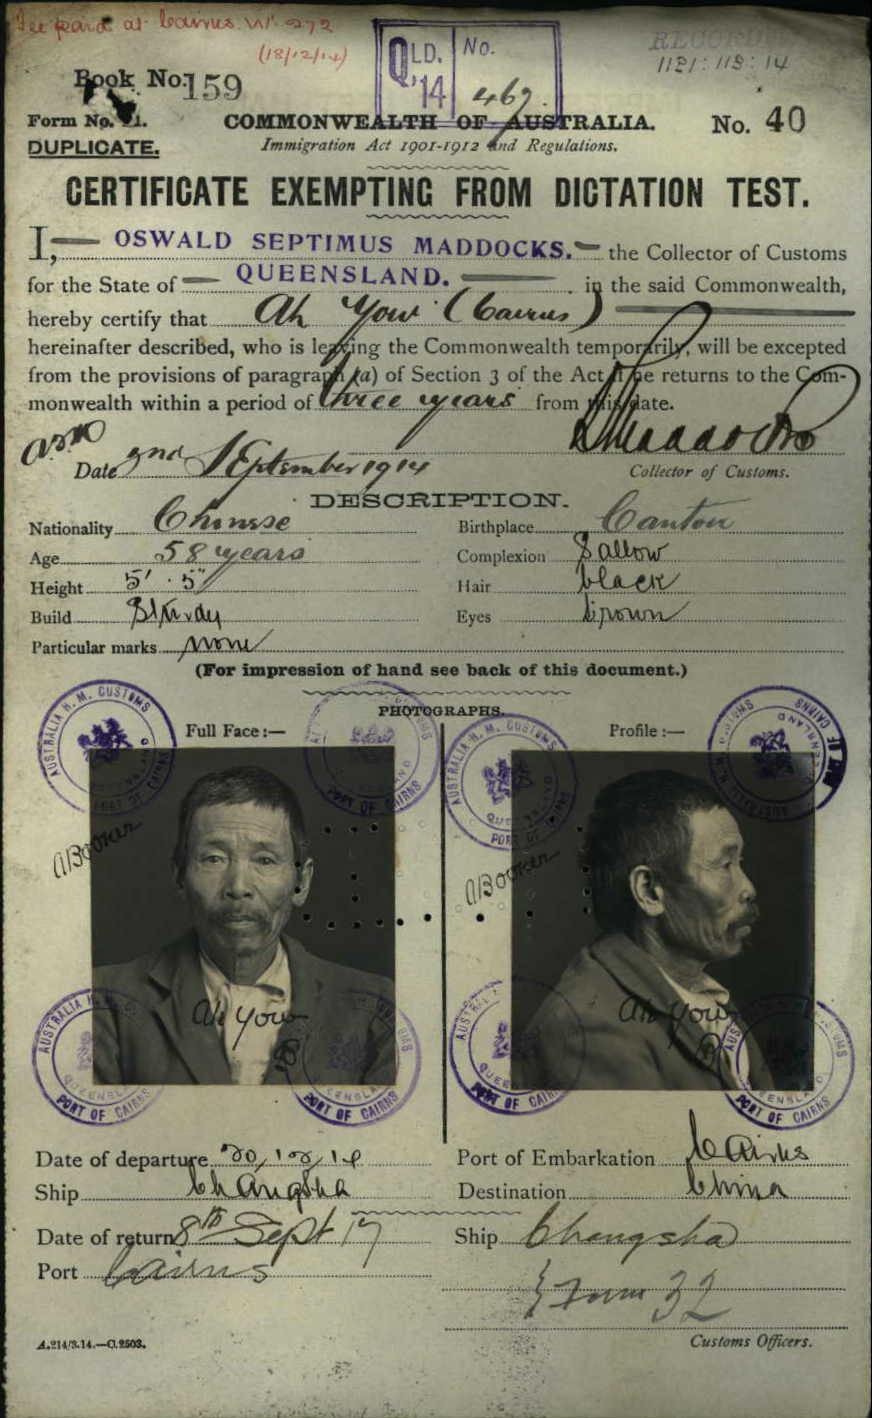 (18/12/14)
QLD. No.
'14 469.
RECORDS
Book No. 159
Form No. 21. COMMONWEALTH OF AUSTRALIA. No. 40
DUPLICATE. Immigration Act 1901-1912 and Regulations.
CERTIFICATE EXEMPTING FROM DICTATION TEST.
I, OSWALD SEPTIMUS MADDOCKS. the Collector of Customs
for the State of QUEENSLAND. in the said Commonwealth,
hereby certify that Ah Yow (Cairns)
hereinafter described, who is leaving the Commonwealth temporarily, will be excepted
from the provisions of paragraph (a) of Section 3 of the Act if he returns to the Com-
monwealth within a period of three years from this date.
Date 2nd September 1914 Collector of Customs.
DESCRIPTION.
Nationality Chinese Birthplace Canton
Age 58 years Complexion Sallow
Height 5' . 5" Hair black
Build Sturdy Eyes brown
Particular marks none
(For impression of hand see back of this document.)
PHOTOGRAPHS.
Full Face:— Profile:—
AUSTRALIA H. M. CUSTOMS QUEENSLAND PORT OF CAIRNS
ABooker ABooker
Ah Yow Ah Yow
Date of departure Port of Embarkation Cairns
Ship Changsha Destination China
Date of return 8th Sept 17 Ship Changsha
Port Cairns
Form 32
A.214/3.14.—C.2503. Customs Officers.